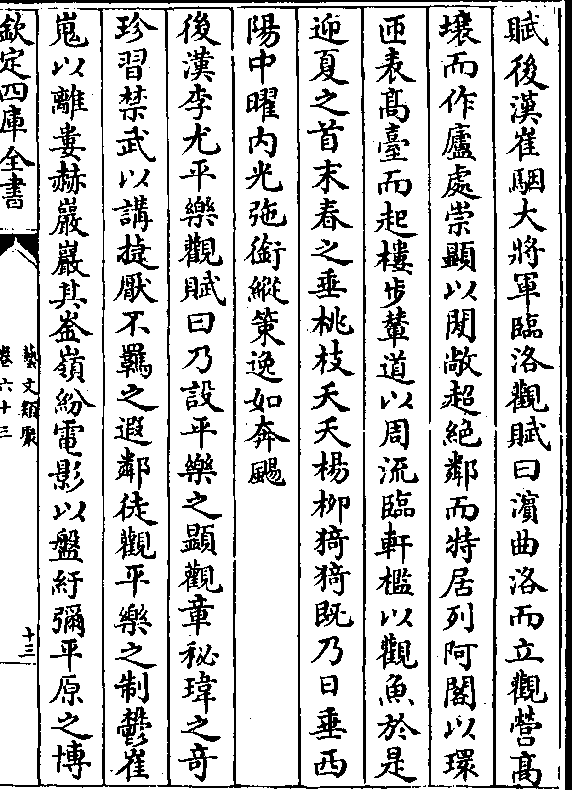 賦後漢崔駰大將軍臨洛觀賦曰濵曲洛而立觀營髙
壌而作廬處崇顯以閒敞超絶鄰而特居列阿閣以環
匝表髙臺而起樓步輦道以周流臨軒檻以觀魚於是
迎夏之首末春之垂桃枝夭夭楊柳猗猗既乃日垂西
陽中曜内光弛銜縱策逸如奔颺
後漢李尤平樂觀賦曰乃設平樂之顯觀章秘瑋之竒
珍習禁武以講捷厭不羈之遐鄰徒觀平樂之制鬱崔
嵬以離婁赫巖巖其崟嶺紛電影以盤紆彌平原之博
欽定四庫全書
藝文類聚
卷六十三
十三